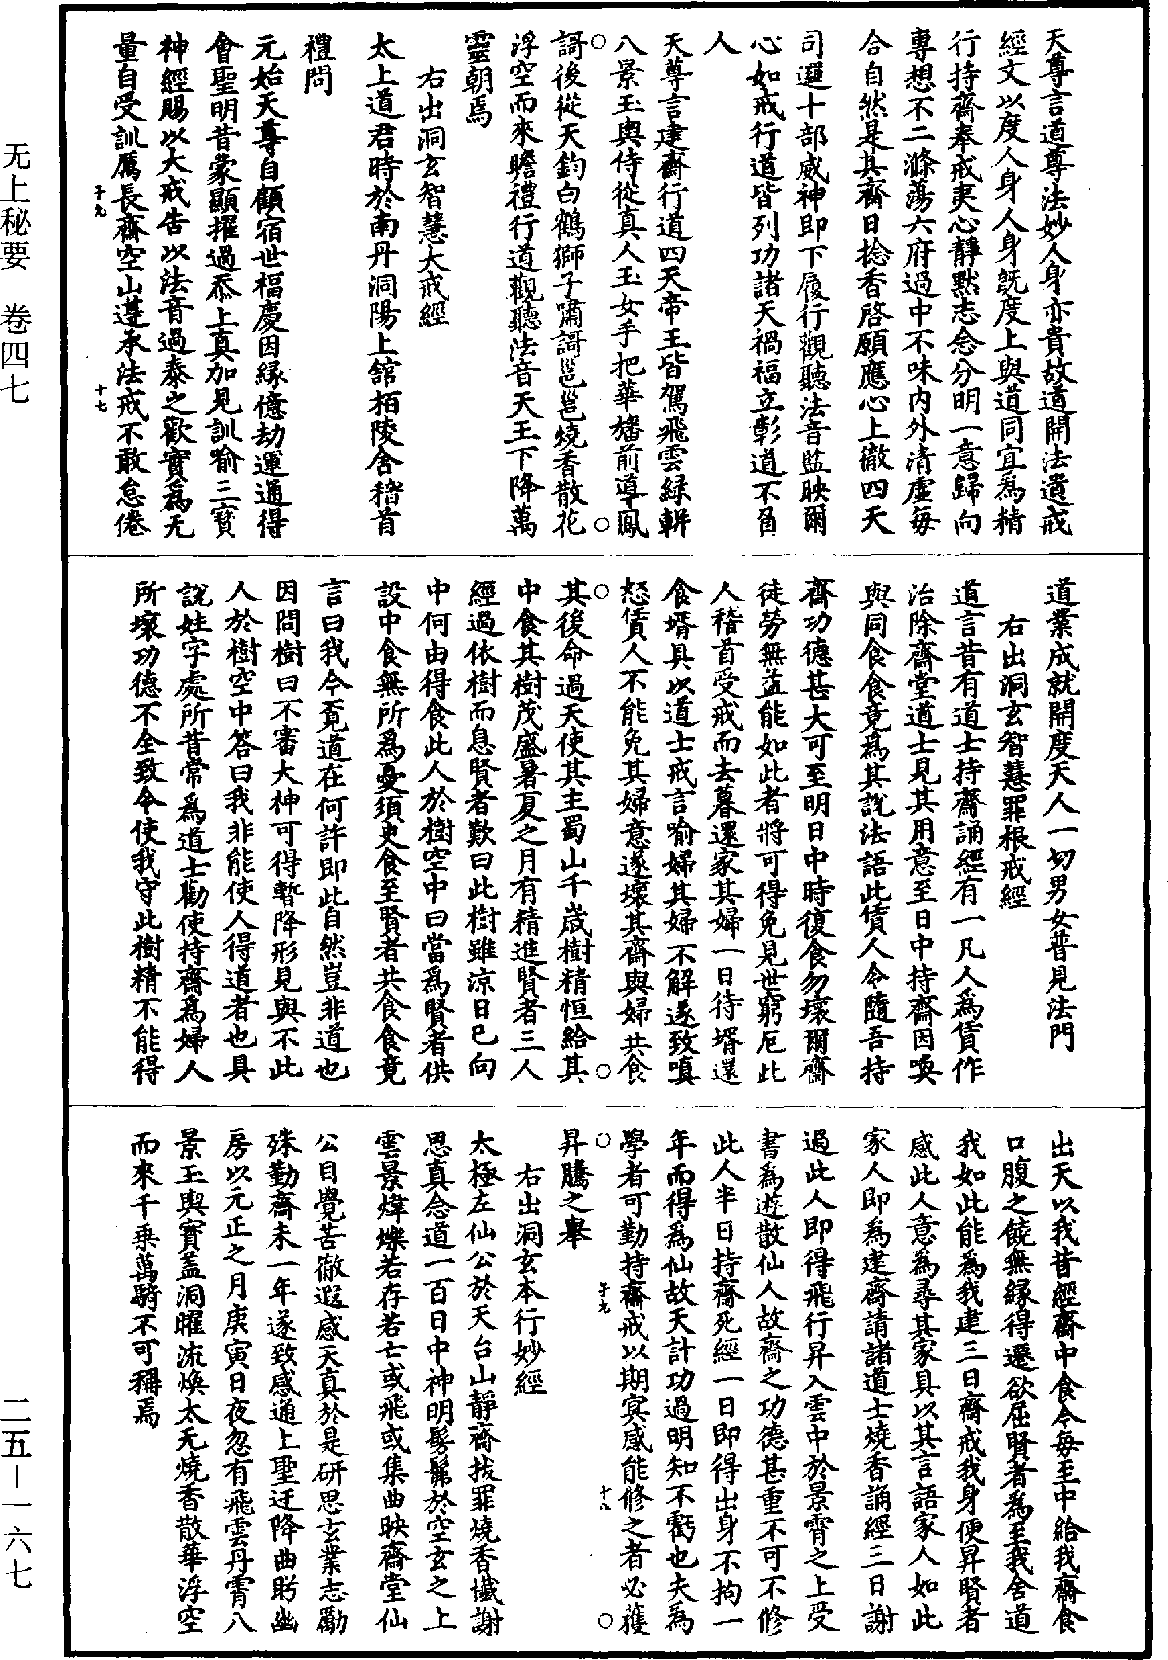 天尊言道尊法妙人身亦貴故道開法遺戒
經文以度人身人身既度上與道同宜為精
行持齋奉戒夷心靜默志念分明一意歸向
專想不二滌蕩六府過中不味內外清虛每
合自然是其齋日捻香啓願應心上徹四天
司邏十部威神即下履行觀聽法音監映爾
心如戒行道皆列功諸天禍福立彰道不負
人
天尊言建齋行道四天帝王皆駕飛雲綠軿
八景玉輿侍從真人玉女手把華旛前導鳳
謌後從天鈞白鶴獅子嘯謌邕邕燒香散花
浮空而來瞻禮行道觀聽法音天王下降萬
靈朝焉
右出洞玄智慧大戒經
太上道君時於南丹洞陽上舘栢陵舍稽首
禮問
元始天尊自顧宿世福慶因緣億劫運通得
會聖明昔蒙顯擢過忝上真加見訓喻三寶
神經賜以大戒告以法音過泰之歡實為无
量自受訓厲長齋空山遵承法戒不敢怠倦
道業成就開度天人一切男女普見法門
右出洞玄智慧罪根戒經
道言昔有道士持齋誦經有一凡人為賃作
治除齋堂道士見其用意至日中持齋因喚
與同食食竟為其說法語此賃人令隨吾持
齋功德甚大可至明日中時復食勿壞爾齋
徒勞無益能如此者將可得免見世窮厄此
人稽首受戒而去暮還家其婦一日待壻還
食壻具以道士戒言喻婦其婦不解遂致嗔
怒賃人不能免其婦意遂壞其齋與婦共食
其後命過天使其主蜀山千歲樹精恒給其
中食其樹茂盛暑夏之月有精進賢者三人
經過依樹而息賢者歎曰此樹雖涼日已向
中何由得食此人於樹空中曰當為賢者供
設中食無所為憂須史食至賢者共食食竟
言曰我今覓道在何許即此自然豈非道也
因問樹曰不審大神可得暫降形見與不此
人於樹空中答曰我非能使人得道者也具
說姓字處所昔常為道士勸使持齋為婦人
所壞功德不全致令使我守此樹精不能得
出天以我昔經齋中食令每至中給我齋食
口腹之饒無緣得遷欲屈賢者為至我舍道
我如此能為我建三日齋戒我身便昇賢者
感此人意為尋其家具以其言語家人如此
家人即為建齋請諸道士燒香誦經三日謝
過此人即得飛行昇入雲中於景霄之上受
書為遊散仙人故齋之功德甚重不可不修
此人半日持齋死經一日即得出身不拘一
年而得為仙故天計功過明知不虧也夫為
學者可勤持齋戒以期冥感能修之者必獲
昇騰之舉
右出洞玄本行妙經
太極左仙公於天台山靜齋拔罪燒香懺謝
思真念道一百日中神明髣髴於空玄之上
雲景煒爍若存若亡或飛或集曲映齋堂仙
公自覺苦徹遐感天真於是研思玄業志勵
殊勤齋未一年遂致感通上聖迂降曲眄幽
房以元正之月庚寅日夜忽有飛雲丹霄八
景玉輿寶蓋洞曜流煥太无燒香散華浮空
而來千乘萬騎不可稱焉
无上秘要　卷四七
二五－一六七
十七
十八